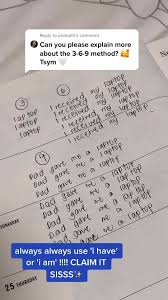 Reply to comment
Can you please explain
more about the 3-6-9 method? 🥰
Tsym 🤍
3
laptop
laptop
laptop
6
I received my laptop
I received my laptop
I received my laptop
I received my laptop
I received my laptop
I received my laptop
9
Dad gave me a laptop
Dad gave me a laptop
Dad gave me a laptop
Dad gave me a laptop
Dad gave me a laptop
Dad gave me a laptop
Dad gave me a laptop
always always use 'i have'
or 'i am' !!!! CLAIM IT
SISSS✨
25 THURSDAY